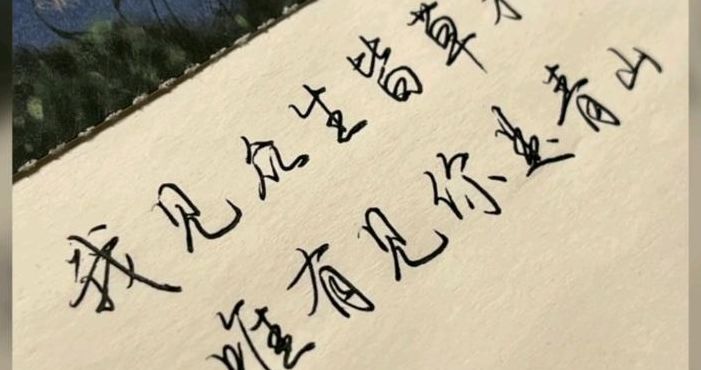 我见众生皆草木
唯有见你是青山